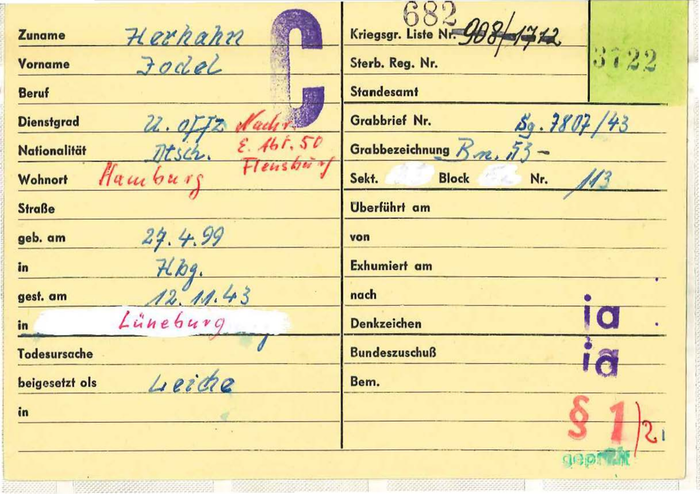 C
Zuname Herhahn
Vorname Jodel
Beruf
Dienstgrad U. offz Nachr.
Nationalität Dtsch. E. Abt. 50
Flensburg
Wohnort Hamburg
Straße
geb. am 27.4.99
in Hbg.
gest. am 12.11.43
in Lüneburg
Todesursache
beigesetzt als Leiche
in
682
Kriegsgr. Liste Nr. 908/1712
3722
Sterb. Reg. Nr.
Standesamt
Grabbrief Nr. Bg. 7807/43
Grabbezeichnung Bn. 53-
Sekt. Block Nr. 113
Überführt am
von
Exhumiert am
nach
Denkzeichen ja
Bundeszuschuß ja
Bem.
§ 1/2
geprüft